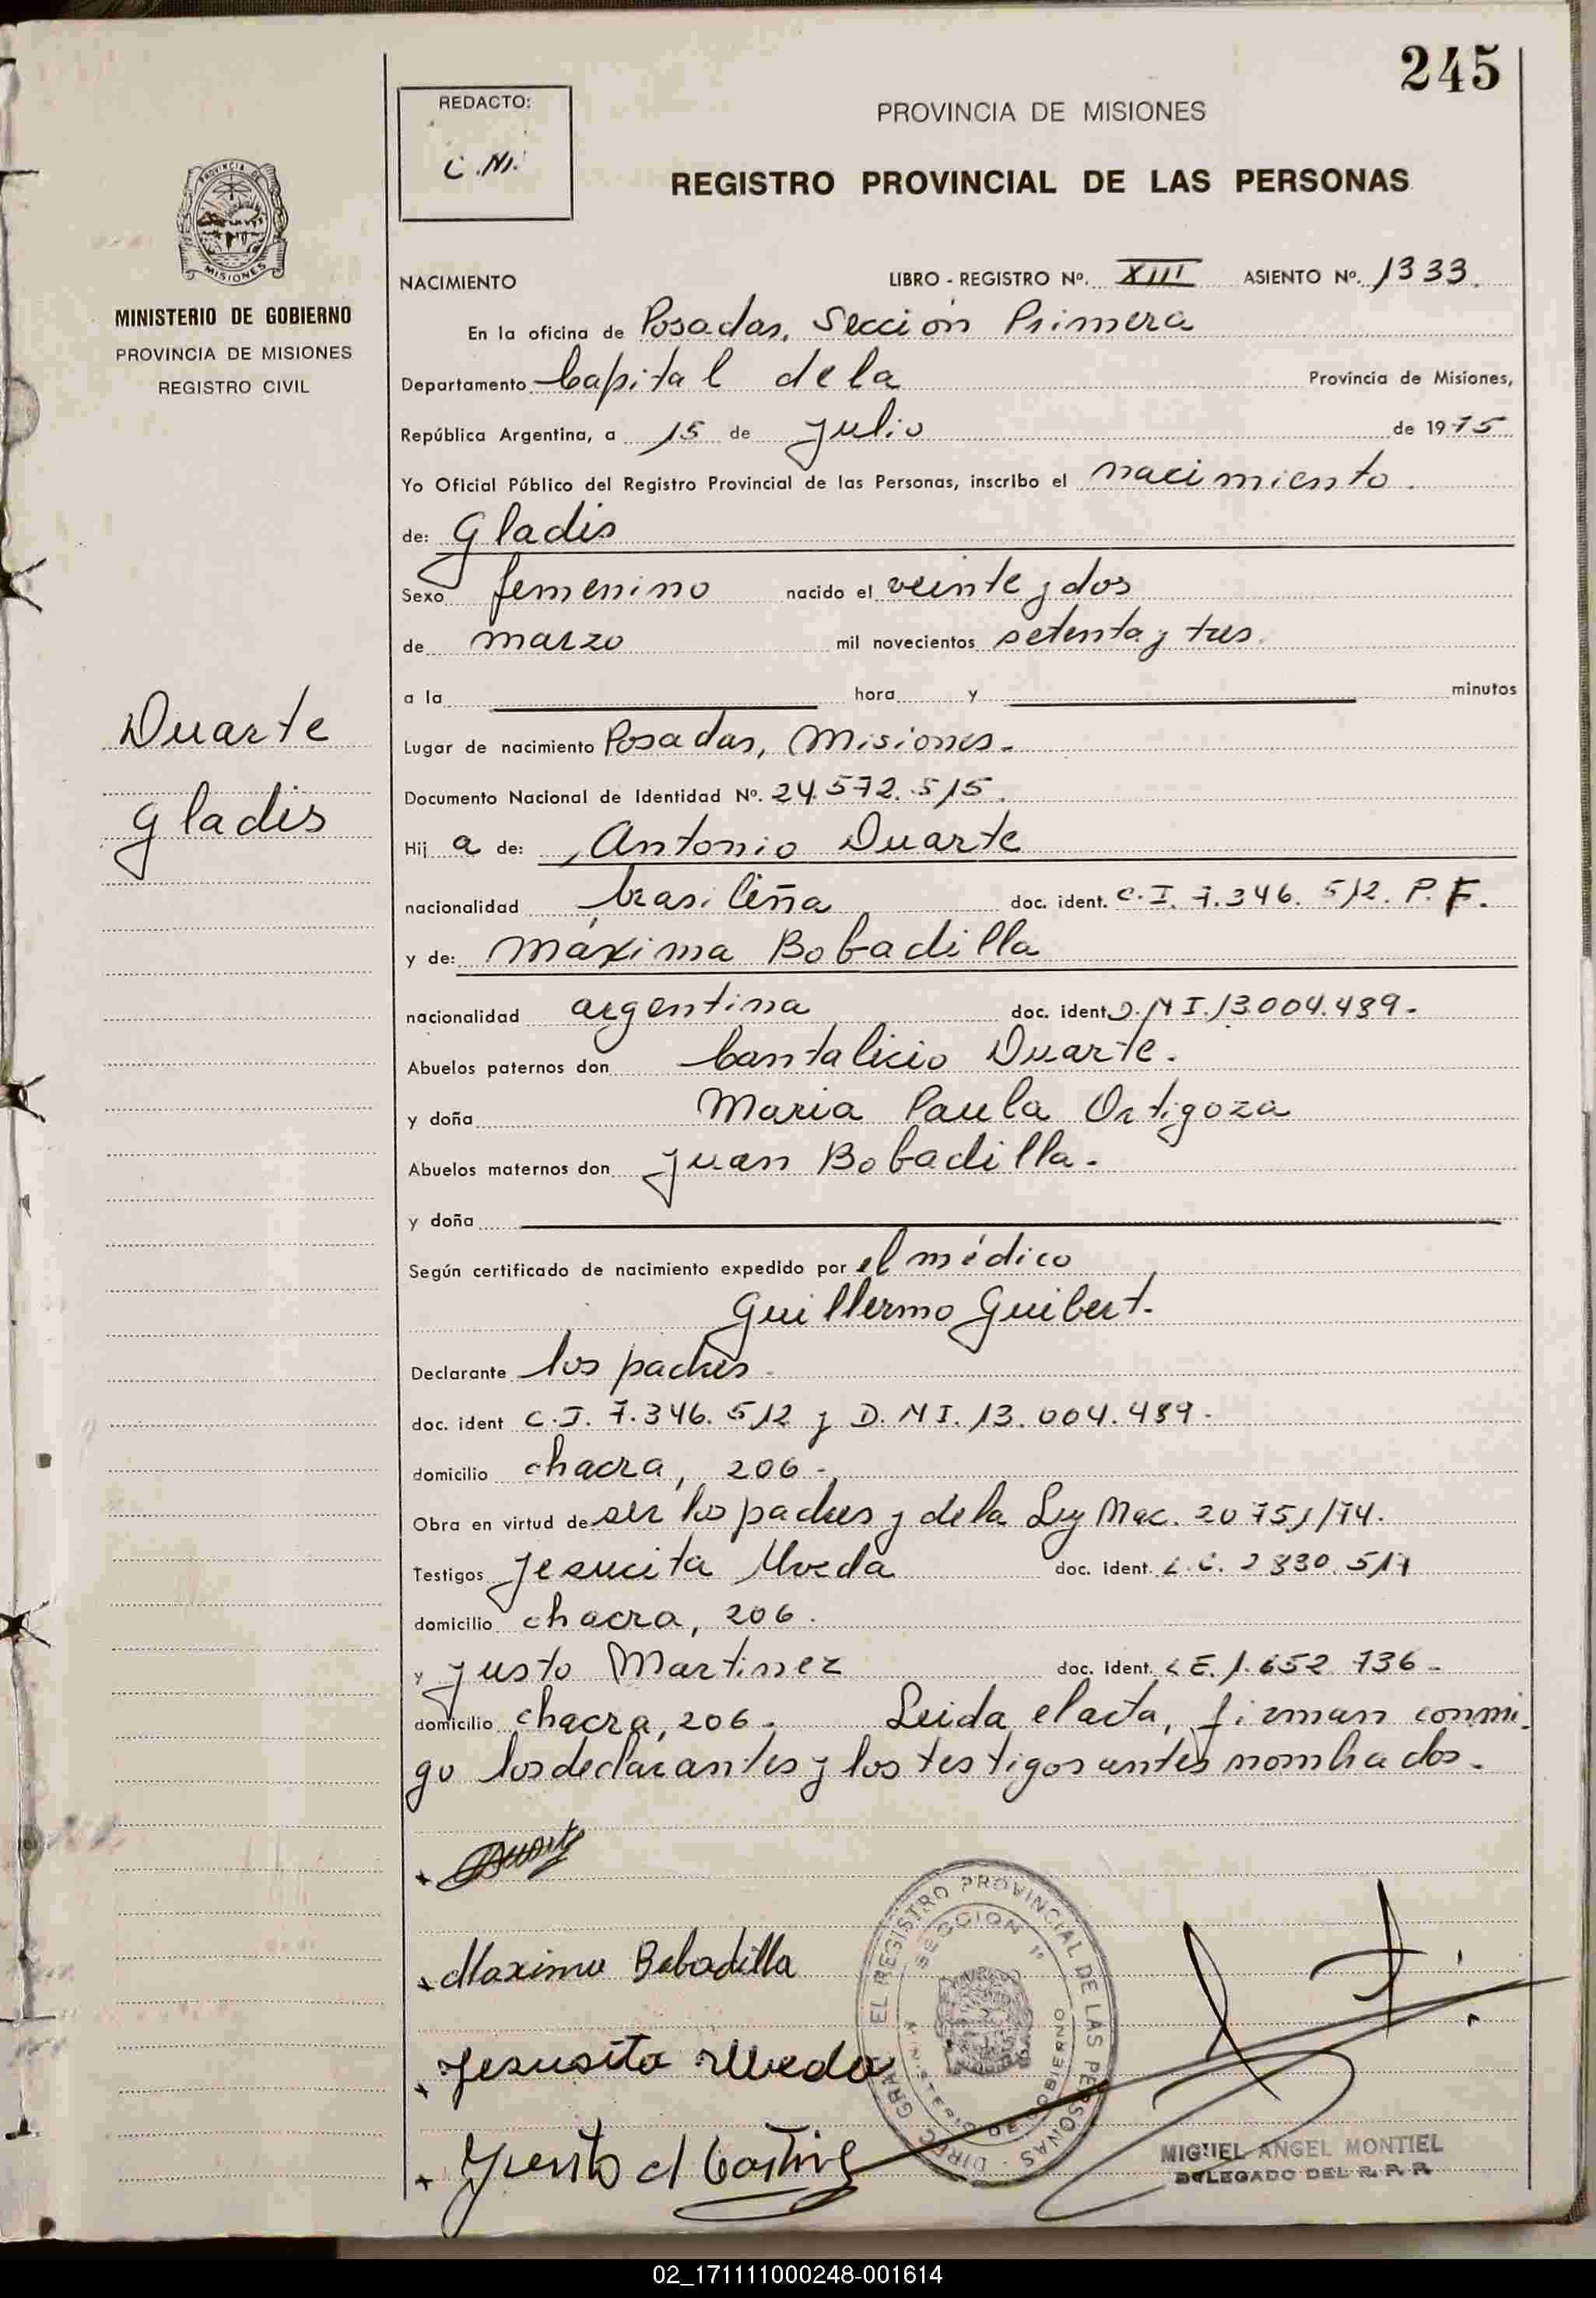 245
REDACTO:
C.M.
PROVINCIA DE MISIONES
REGISTRO PROVINCIAL DE LAS PERSONAS
PROVINCIA DE
MISIONES
MINISTERIO DE GOBIERNO
PROVINCIA DE MISIONES
REGISTRO CIVIL
Duarte
Gladis
NACIMIENTO LIBRO - REGISTRO Nº. XIII ASIENTO Nº. 1333.
En la oficina de Posadas, Sección Primera
Departamento Capital de la Provincia de Misiones,
República Argentina, a 15 de Julio de 1975
Yo Oficial Público del Registro Provincial de las Personas, inscribo el nacimiento.
de: Gladis
Sexo femenino nacido el veinte y dos
de marzo mil novecientos setenta y tres.
a la hora y minutos
Lugar de nacimiento Posadas, Misiones.
Documento Nacional de Identidad Nº. 24.572.515.
Hij a de: Antonio Duarte
nacionalidad brasileña doc. ident. C.I. 7.346.512. P.F.
y de: Máxima Bobadilla
nacionalidad argentina doc. ident D.N I. 13.004.489.
Abuelos paternos don Cantalicio Duarte.
y doña Maria Paula Ortigoza
Abuelos maternos don Juan Bobadilla.
y doña
Según certificado de nacimiento expedido por el médico
Guillermo Guibert.
Declarante los padres.
doc. ident C.I. 7.346.512 y D.N I. 13.004.489.
domicilio chacra, 206.
Obra en virtud de ser los padres y de la Ley Nac. 20751/74.
Testigos Jesucita Uveda doc. ident. L.C. 2 830.517
domicilio chacra, 206.
y Justo Martinez doc. ident. L E. 1.652 736.
domicilio chacra, 206. Leida el acta, firman conmi
go los declarantes y los testigos antes nombrados.
Duarte
Maxima Bobadilla
Jesusita Uveda
Justo Martinez
DIREC. GRAL. EL REGISTRO PROVINCIAL DE LAS PERSONAS
SECCION 1ª
MINISTERIO DE GOBIERNO
MIGUEL ANGEL MONTIEL
DELEGADO DEL R. P. P.
02_171111000248-001614